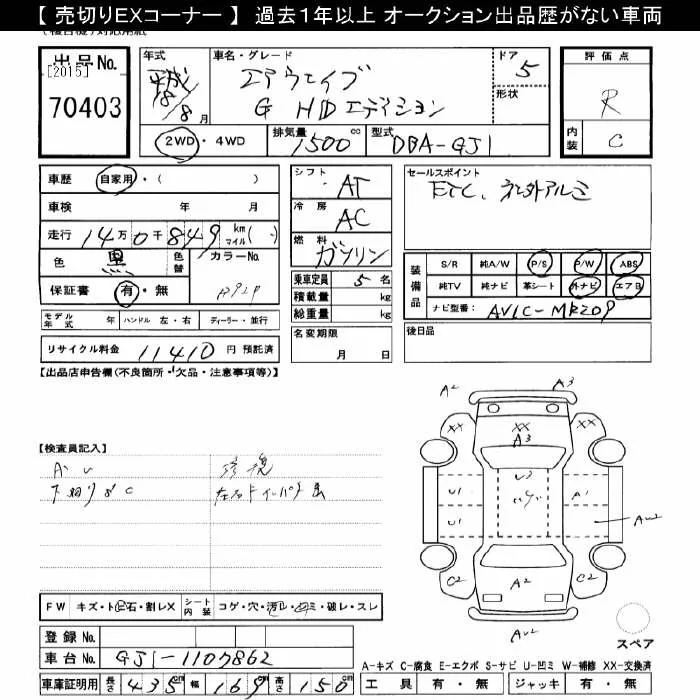 【 売切りEXコーナー 】 過去1年以上 オークション出品歴がない車両
出品No.
[2015]
70403
年式
平成
18/8月
車名・グレード
エアウェイブ
G HDエディション
ドア
5
形状
評価点
R
内装
C
2WD・4WD
排気量
1500cc
型式
DBA-GJ1
車歴 自家用・( )
車検 年 月
走行 14万0千849 km マイル( )
色 黒 色替 カラーNo.
保証書 有・無
モデル年式 年 ハンドル 左・右 ディーラー・並行
リサイクル料金 11410 円 預託済
シフト AT
冷房 AC
燃料 ガソリン
乗車定員 5 名
積載量 kg
総重量 kg
名変期限
月 日
セールスポイント
ETC、社外アルミ
装備品
S/R 純A/W P/S P/W ABS
純TV 純ナビ 革シート 外ナビ エアB
ナビ型番: AVIC-MRZ09
後日品
【出品店申告欄(不良箇所・欠品・注意事項等)】
【検査員記入】
AU 修復
下廻りサC
A2 A3
XX XX
A3
U3
U1 A1
U1 AU2
C2 A2 C2
AU2
スペア
FW キズ・トビ石・割レX シート内装 コゲ・穴・汚レ・凹ミ・破レ・スレ
登録No.
車台No. GJ1-1107862
車庫証明用 長さ 435 cm 幅 169 cm 高さ 150 cm
A-キズ C-腐食 E-エクボ S-サビ U-凹ミ W-補修 XX-交換済
工具 有・無 ジャッキ 有・無